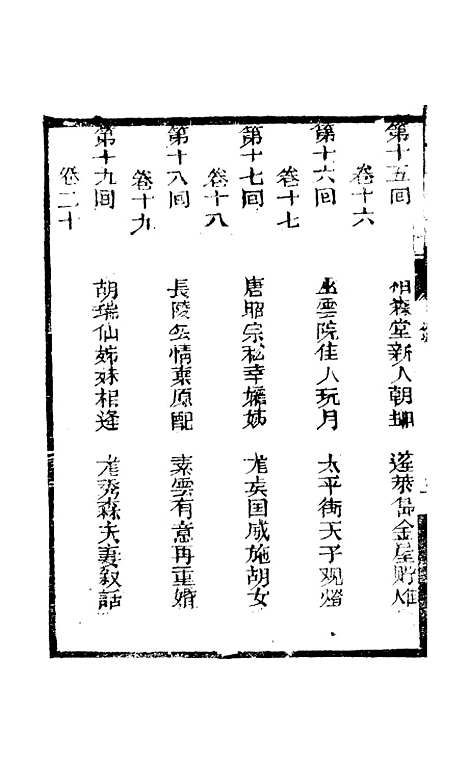 第十五回 柏森堂新人朝 蓬萊島金屋貯
卷十六
第十六回 雲院佳人玩月 太平街天子观燈
卷十七
第十七回 唐昭宗私幸 姊 国威施胡女
卷十八
第十八回 長陵無情棄原配 素雲有意再重婚
卷十九
第十九回 胡瑞仙姊妹相逢 秀森夫妻叙話
卷二十